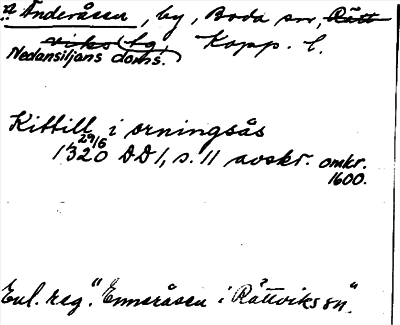 Anderåsen, by, Boda sn, Rätt-
viks tg, Kopp. l.
Nedansiljans doms.
Kittill i orningsås
1320 29/6 DD 1, s. 11 avskr. omkr.
1600.
Enl. reg. "Enneråsen i Rättviks sn".